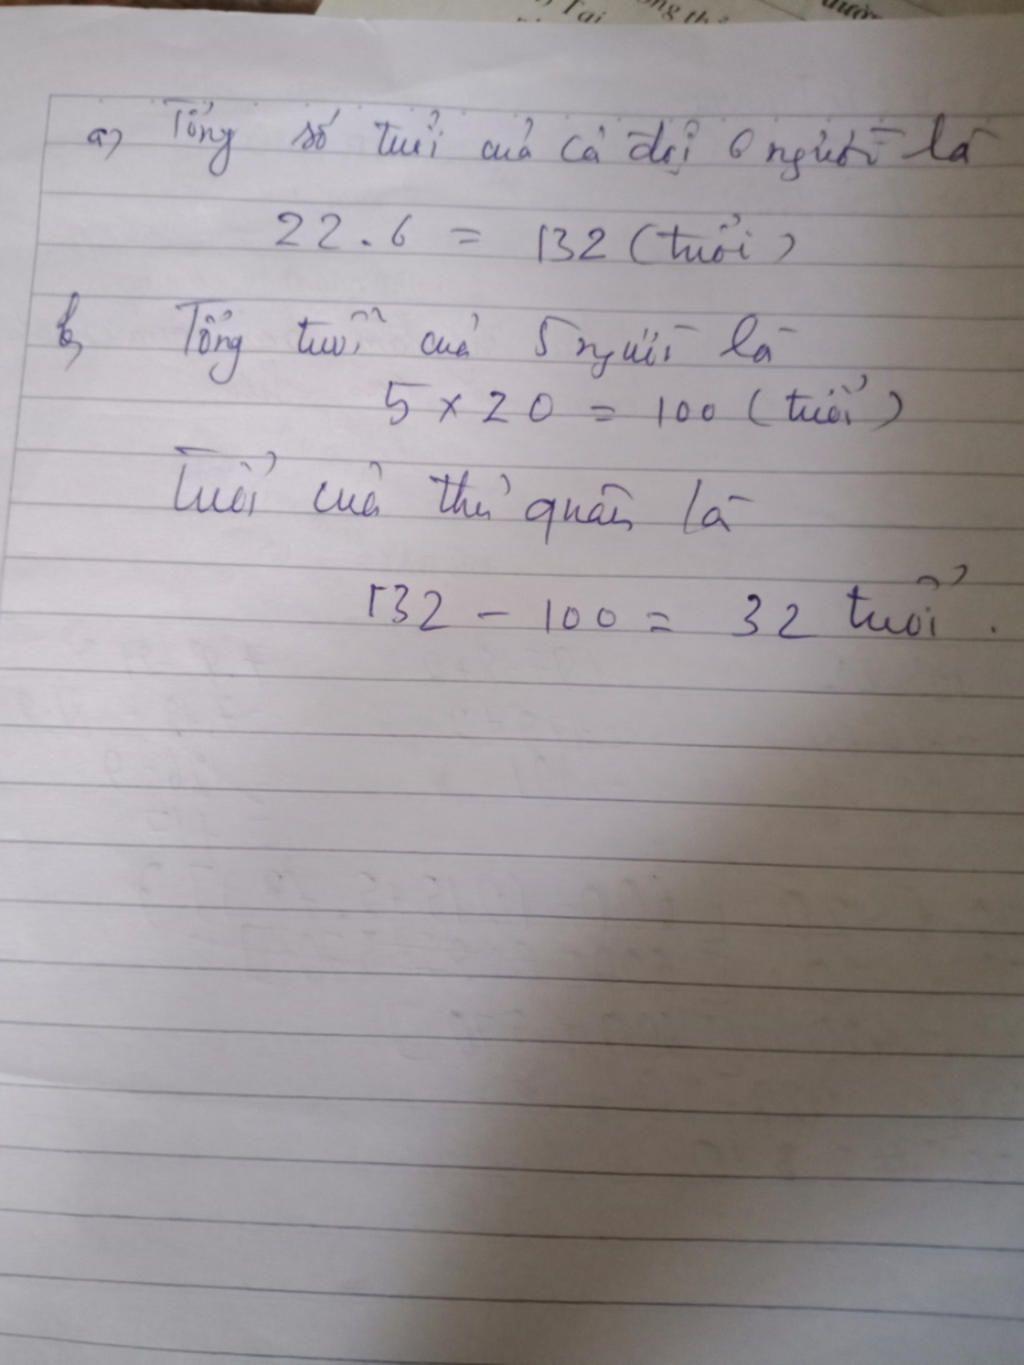 Tại
ng th
a) Tổng số tuổi của cả đội 6 người là
22.6 = 132 (tuổi)
b, Tổng tuổi của 5 người là
5 x 20 = 100 (tuổi)
Tuổi của thủ quân là
132 - 100 = 32 tuổi.